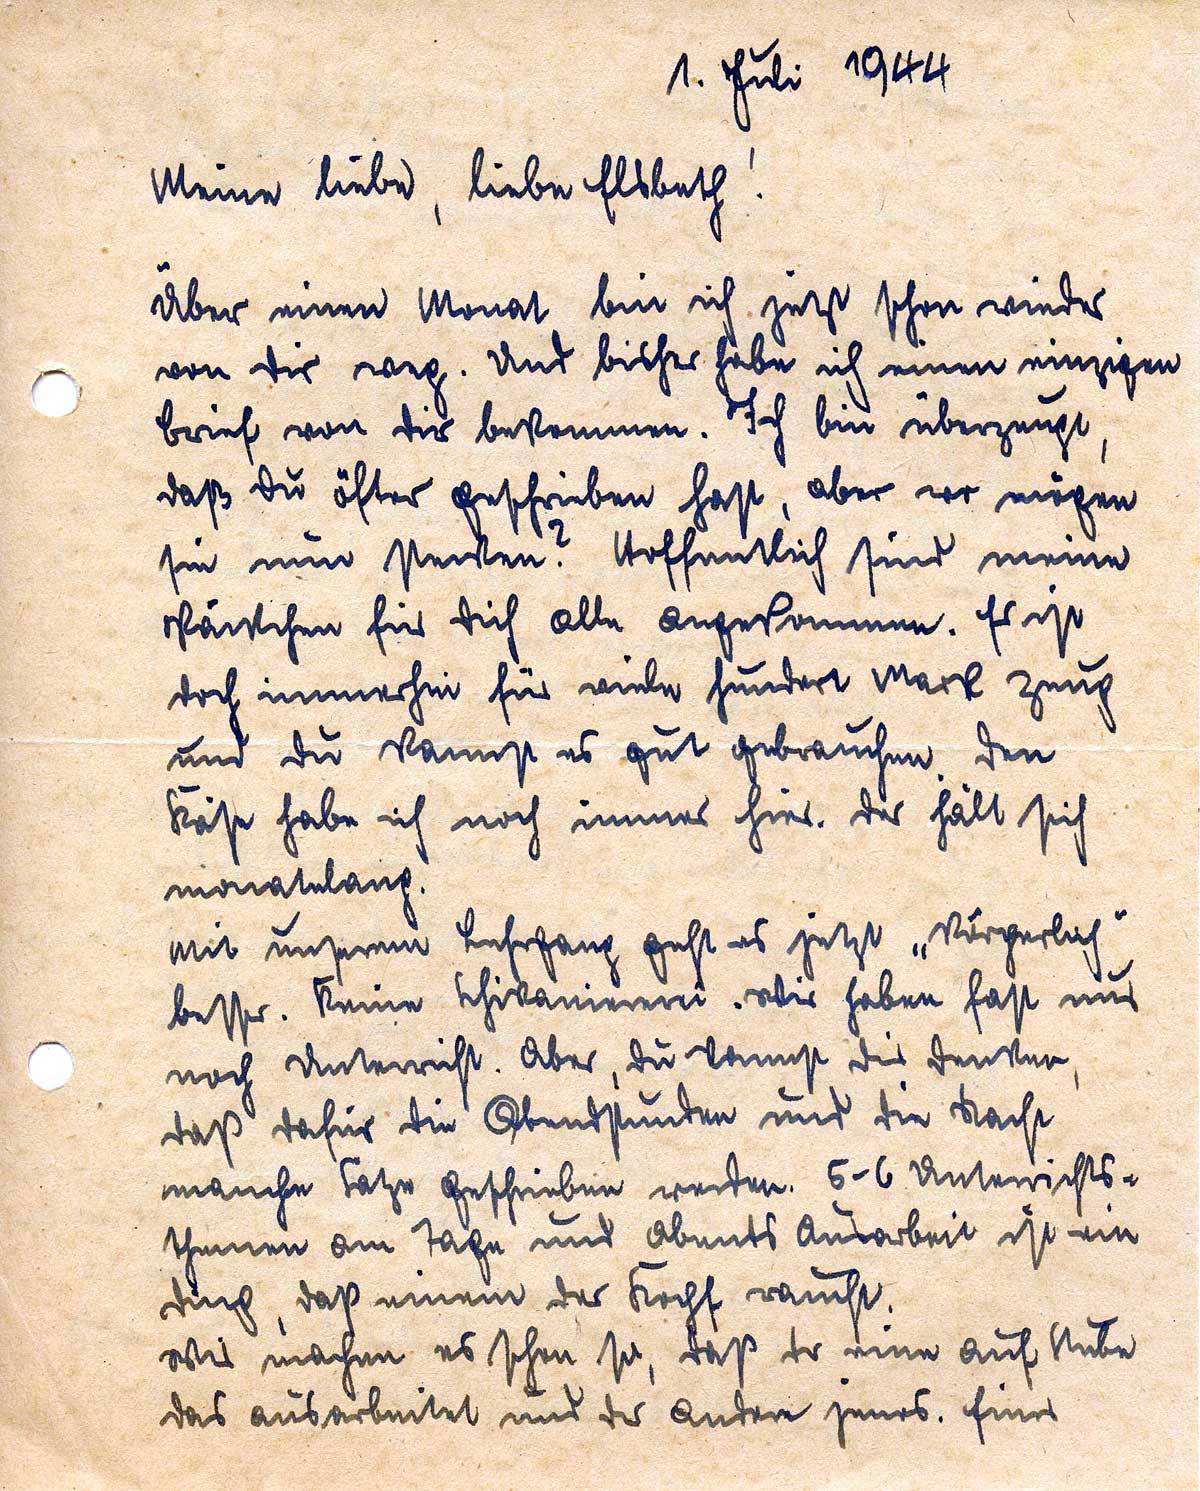 1. Juli 1944
Meine liebe, liebe Elsbeth!
Über einen Monat bin ich jetzt schon wieder
von dir weg. Und bisher habe ich einen einzigen
Brief von dir bekommen. Ich bin überzeugt,
daß du öfter geschrieben hast, aber wo mögen
sie nun stecken? Hoffentlich sind meine
Päckchen für dich alle angekommen. Es ist
doch immerhin für viele hundert Mark Zeug
und du kannst es gut gebrauchen. Den
Käse habe ich noch immer hier. Der hält sich
monatelang.
Mit unserem Lehrgang geht es jetzt „körperlich"
besser. Keine Schikaniererei. Wir haben fast nur
noch Unterricht. Aber, du kannst dir denken,
daß dafür die Abendstunden und die Nacht
manche Sätze geschrieben werden. 5-6 Unterrichts-
themen am Tage und Abents Ausarbeit ist ein
Ding, daß einem der Kopf raucht.
Wir machen es schon so, daß der eine auf Stube
das ausarbeitet und der andere jenes. Einer